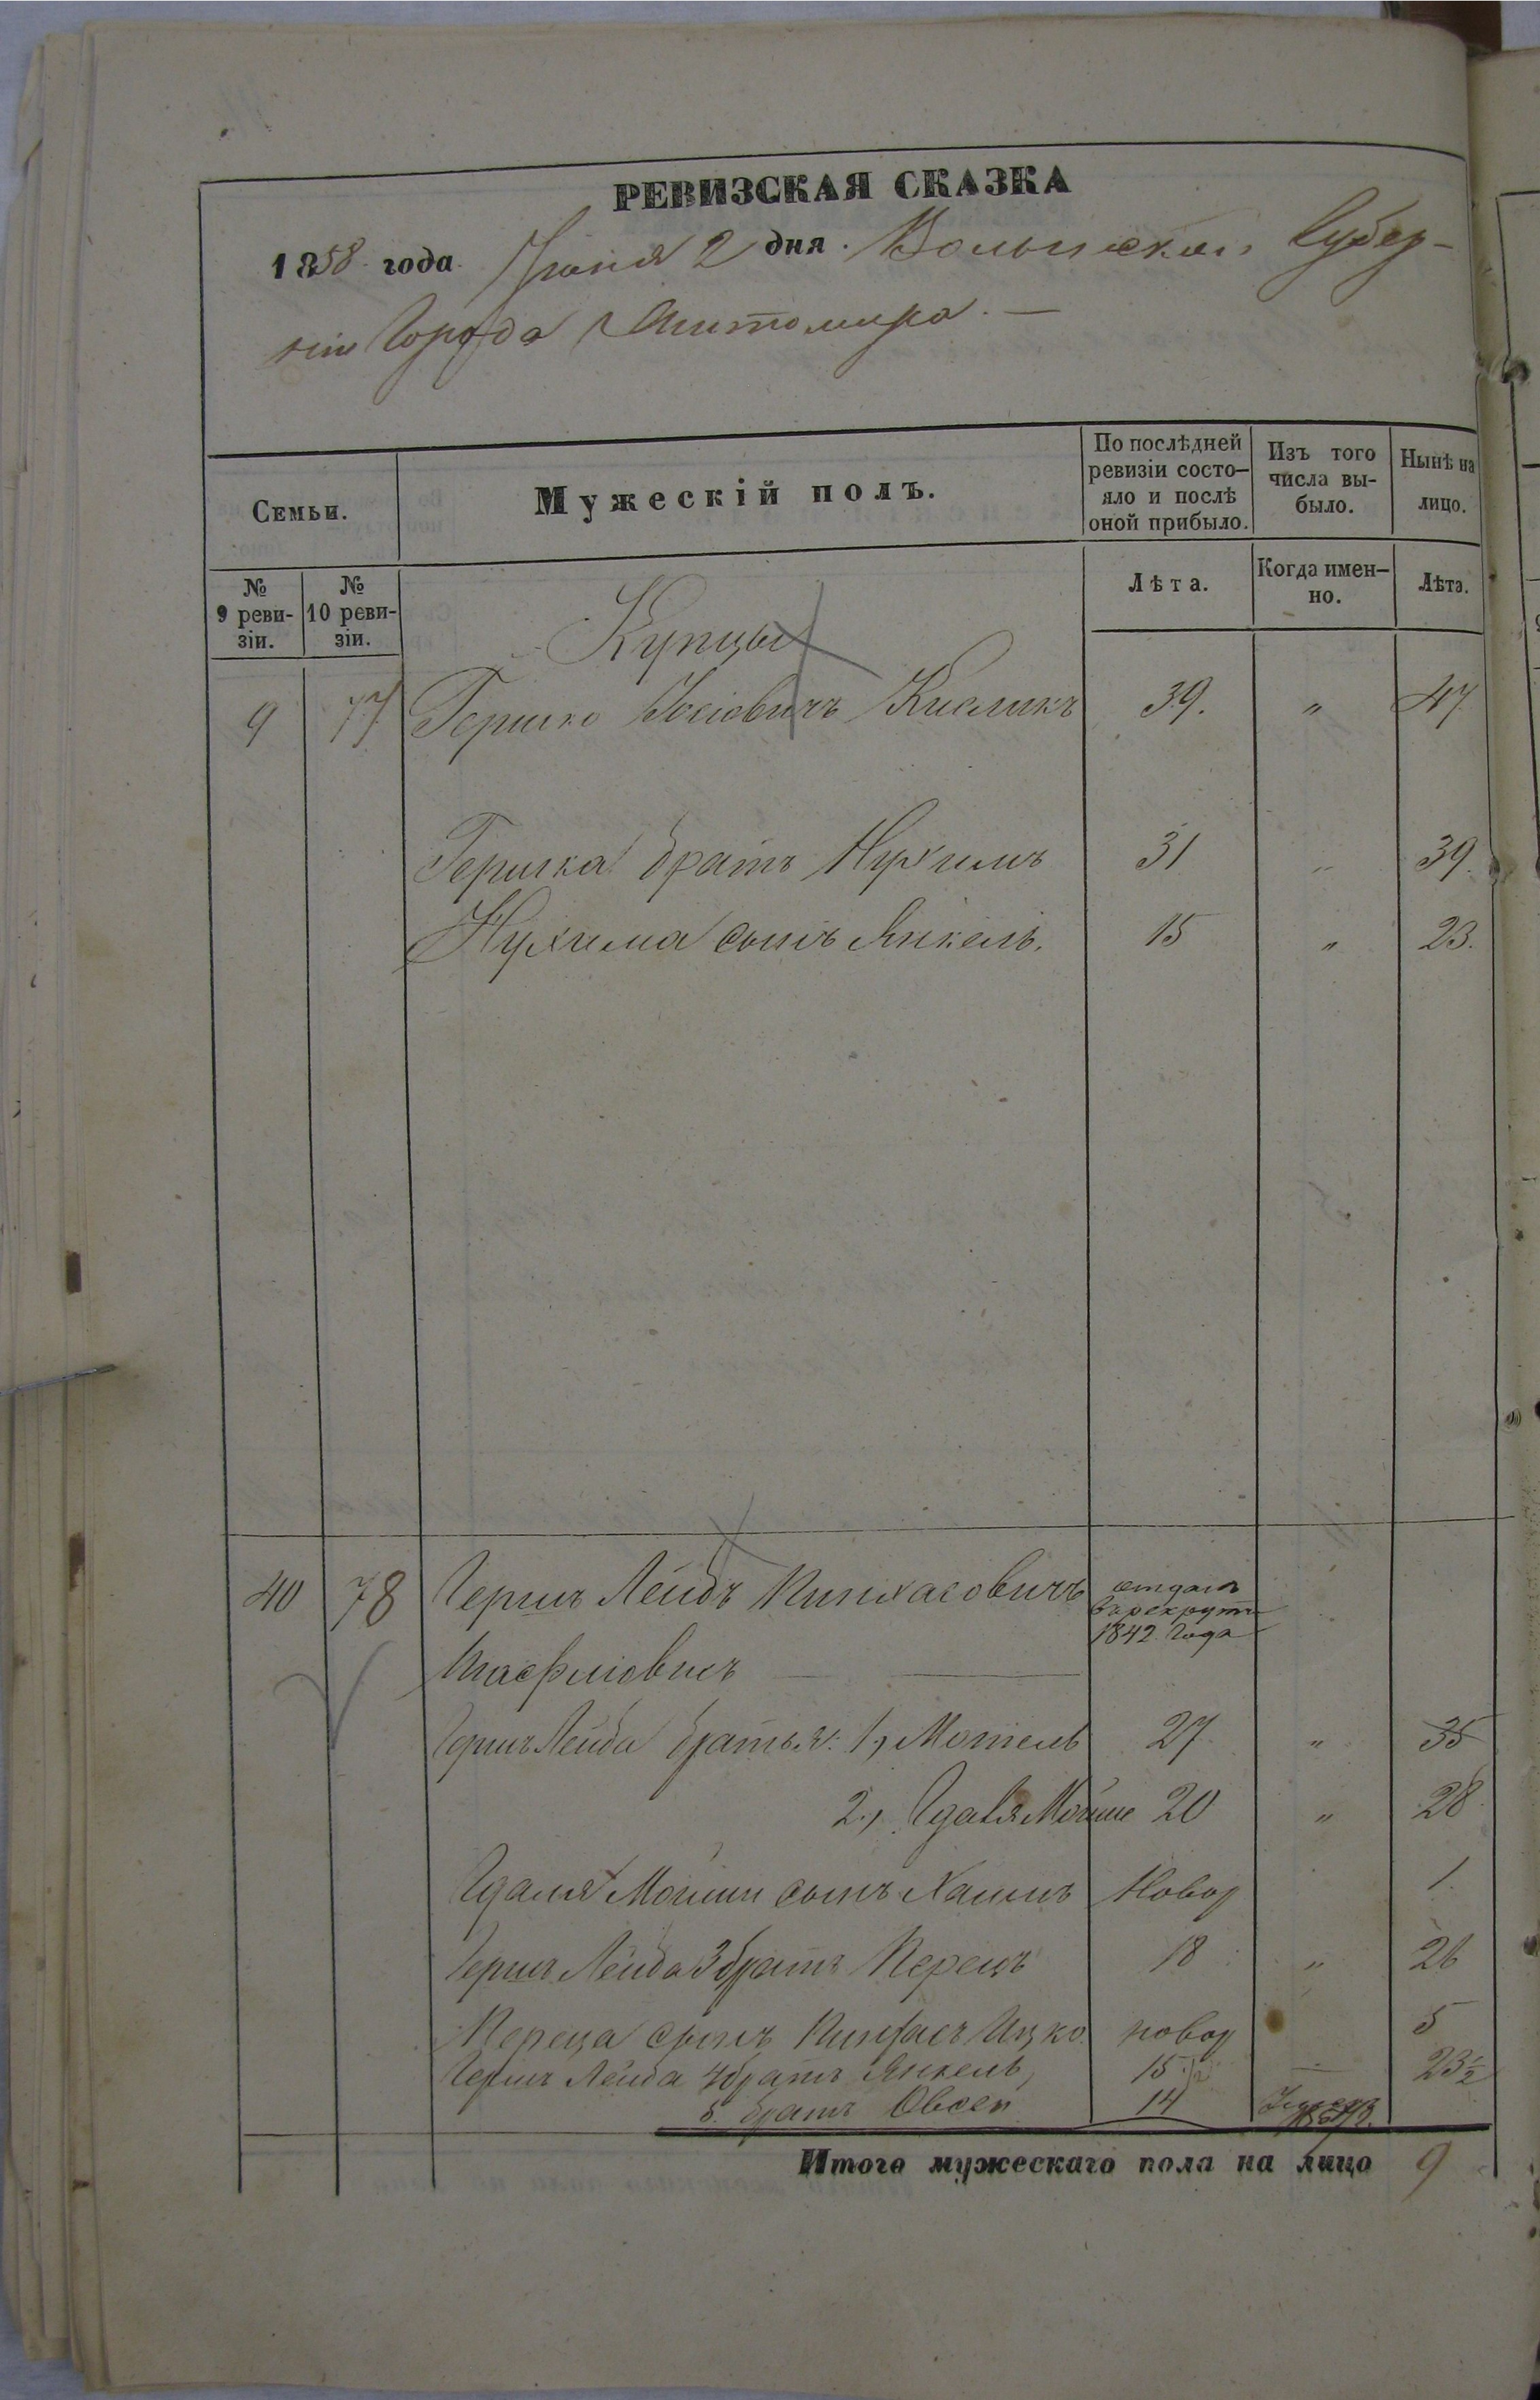 РЕВИЗСКАЯ СКАЗКА
1858 года Іюня 2 дня. Волынской Губер-
ніи Города Житомира. —
Семьи.
Мужескій полъ.
По послѣдней ревизіи состо-яло и послѣ оной прибыло.
Изъ того числа вы-было.
Нынѣ на лицо.
№ 9 реви-зіи.
№ 10 реви-зіи.
Лѣта.
Когда имен-но.
Лѣта.
Купцы
9 77 Гершко Іосіовичъ 39. " 47
Гершка братъ Нухимъ 31 " 39.
Нухима сынъ Янкель. 15 " 23.
40 78 Гершъ Лейбъ Пинхасовичъ отданъ
въ рекруты
1842 Года
Гершъ Лейба братья: 1, Мотель 27 " 35
2., Гдаля Мойше 20 " 28
Гдаля Мойши сынъ Хаимъ Новор 1.
Гершъ Лейба 3 братъ Перецъ 18 " 26
Переца сынъ Пинхасъ Ицко новор 5
Гершъ Лейба 4 братъ Янкель 15 1/2 — 23 1/2
5. братъ Овсей 14
Итого мужескаго пола на лицо 9